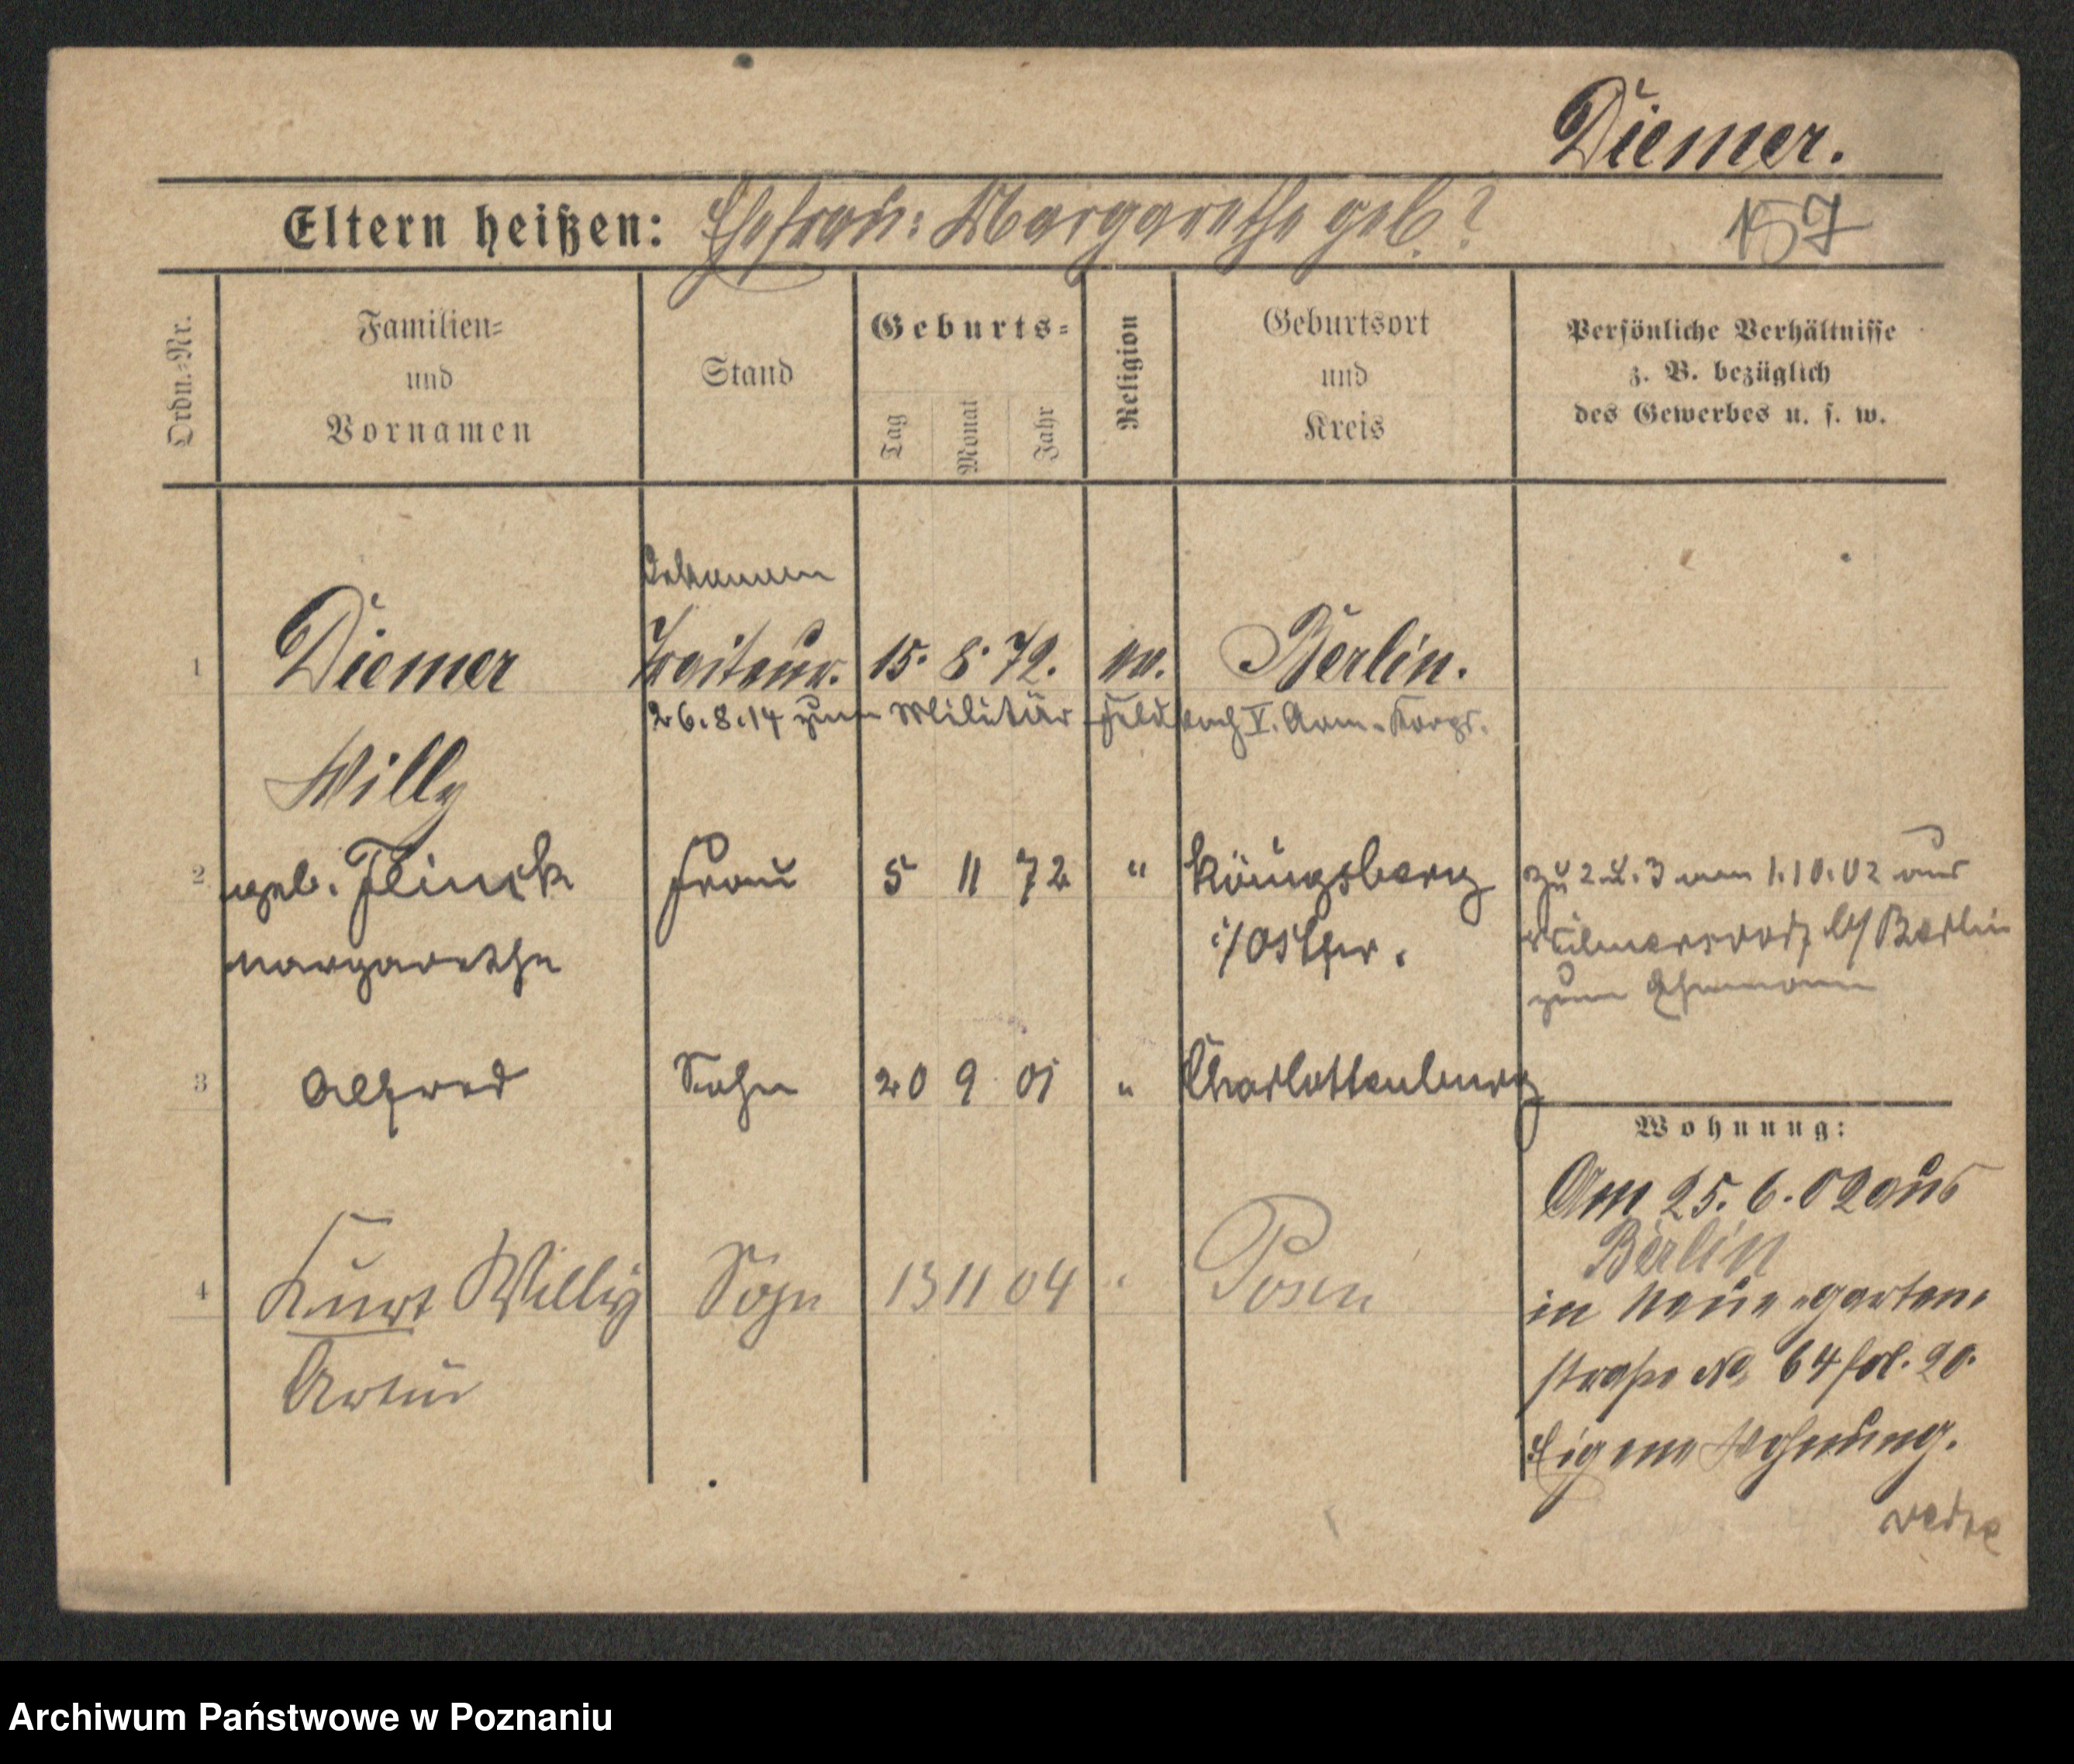 Diemer.
Eltern heißen: Ehefrau: Margarethe geb.? 157
Ordn.=Nr.
Familien=
und
Vornamen
Stand
Geburts=
Tag
Monat
Jahr
Religion
Geburtsort
und
Kreis
Persönliche Verhältnisse
z. B. bezüglich
des Gewerbes u. s. w.
Oekonom
1 Diemer Traiteur. 15. 8. 72. ev. Berlin.
26.8.14 zum Militär Feld V. Arm. Korps.
Willy
2 geb. Flinck Frau 5 11 72 " Königsberg zu 2 u. 3 am 1.10.02 aus
Margarethe i/Ostpr. Wilmersdorf b/ Berlin
zum Ehemann
3 Alfred Sohn 20 9 01 " Charlottenburg
Wohnung:
Am 25. 6. 02 aus
Berlin
4 Kurt Willy Sohn 13 11 04 " Posen
in Neue=garten=
Artur
straße No 64 fol. 20.
Eigene Wohnung.